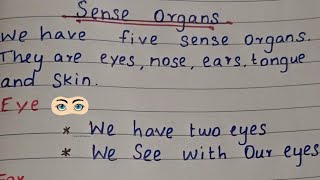 Sense Organs
We have five sense organs.
They are eyes, nose, ears, tongue
and skin.
Eye
* We have two eyes
* We See with Our eyes
Ear